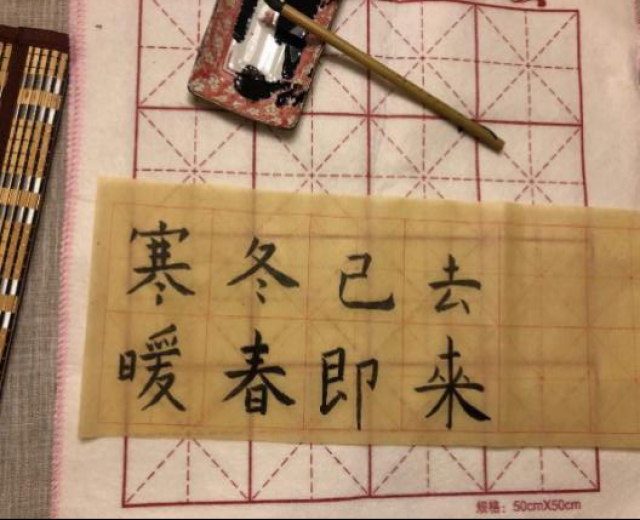 寒冬已去
暖春即來
规格：50cmX50cm